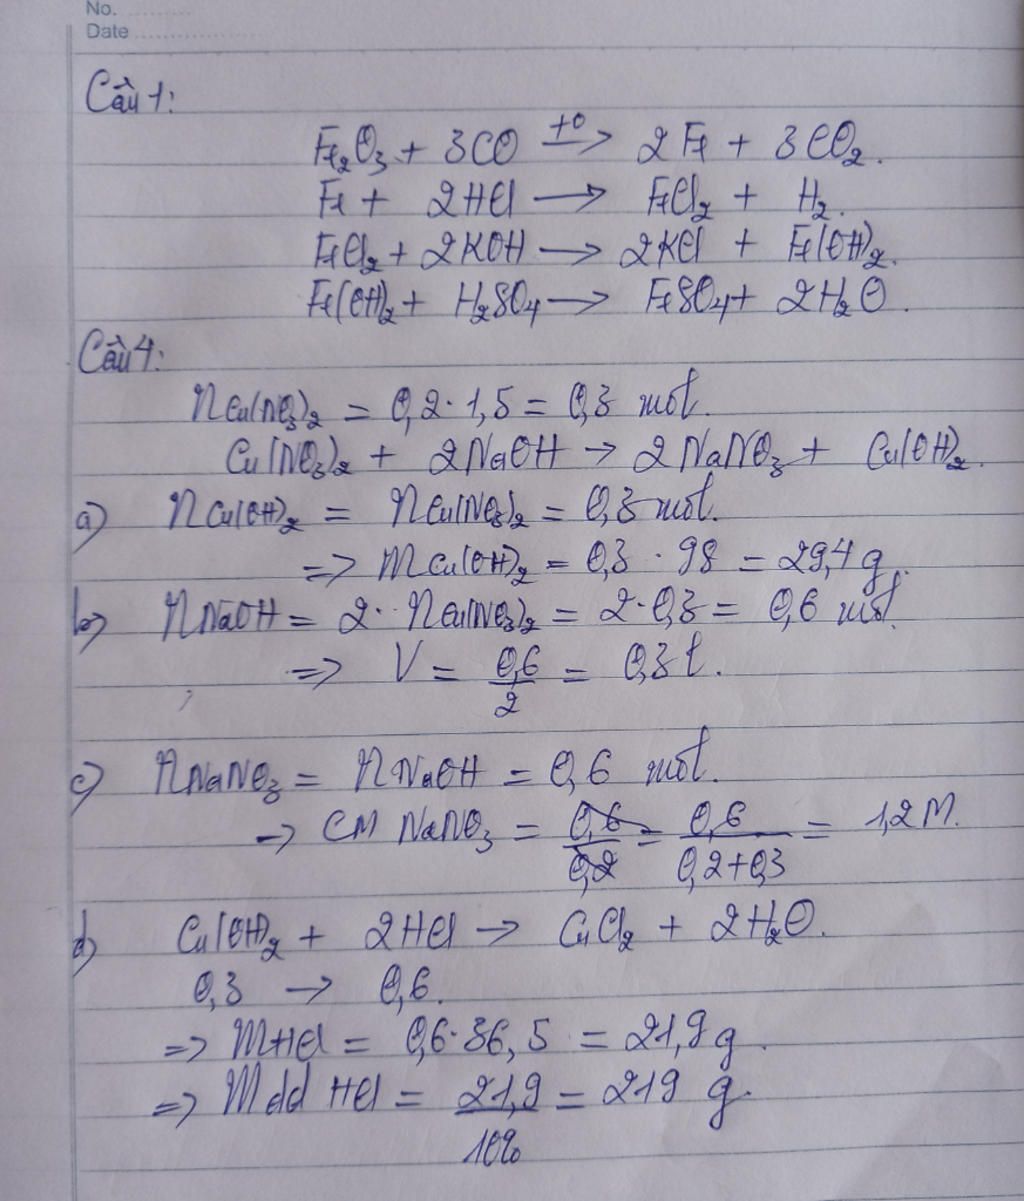 No. ..............
Date ......................
Câu 1:
Fe₂O₃ + 3CO t° → 2Fe + 3CO₂.
Fe + 2HCl → FeCl₂ + H₂.
FeCl₂ + 2KOH → 2KCl + Fe(OH)₂.
Fe(OH)₂ + H₂SO₄ → FeSO₄ + 2H₂O.
Câu 4:
nCu(NO₃)₂ = 0,2 · 1,5 = 0,3 mol.
Cu(NO₃)₂ + 2NaOH → 2NaNO₃ + Cu(OH)₂.
a) nCu(OH)₂ = nCu(NO₃)₂ = 0,3 mol.
=> mCu(OH)₂ = 0,3 · 98 = 29,4 g.
b) nNaOH = 2 · nCu(NO₃)₂ = 2 · 0,3 = 0,6 mol.
=> V = 0,6/2 = 0,3 l.
c) nNaNO₃ = nNaOH = 0,6 mol.
→ CM NaNO₃ = 0,6/0,2 = 0,6/(0,2+0,3) = 1,2 M.
d) Cu(OH)₂ + 2HCl → CuCl₂ + 2H₂O.
0,3 → 0,6.
=> mHCl = 0,6 · 36,5 = 21,9 g.
=> mdd HCl = 21,9/10% = 219 g.